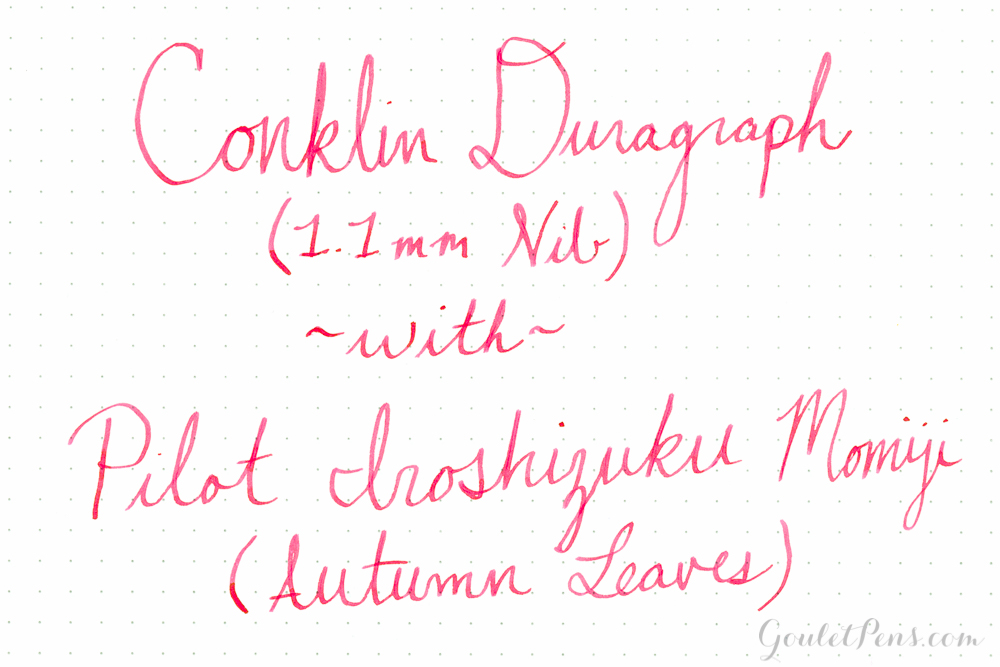 Conklin Duragraph
(1.1mm Nib)
~with~
Pilot Iroshizuku Momiji
(Autumn Leaves)
GouletPens.com